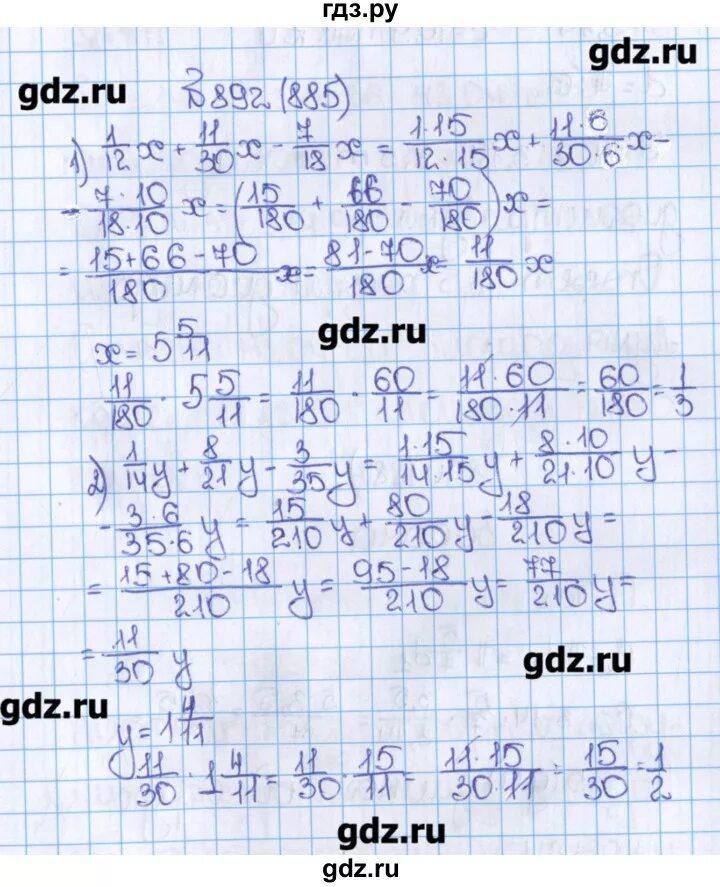 гдз.ру
gdz.ru
gdz.ru
№892 (885)
1) 1/12 x + 11/30 x - 7/18 x = 1·15/12·15 x + 11·6/30·6 x -
- 7·10/18·10 x = (15/180 + 66/180 - 70/180) x =
= 15+66-70/180 x = 81-70/180 x = 11/180 x
gdz.ru
x = 5 5/11
11/180 · 5 5/11 = 11/180 · 60/11 = 11·60/180·11 = 60/180 = 1/3
2) 1/14 y + 8/21 y - 3/35 y = 1·15/14·15 y + 8·10/21·10 y -
- 3·6/35·6 y = 15/210 y + 80/210 y - 18/210 y =
= 15+80-18/210 y = 95-18/210 y = 77/210 y =
= 11/30 y
gdz.ru
gdz.ru
y = 1 4/11
11/30 · 1 4/11 = 11/30 · 15/11 = 11·15/30·11 = 15/30 = 1/2
gdz.ru
gdz.ru